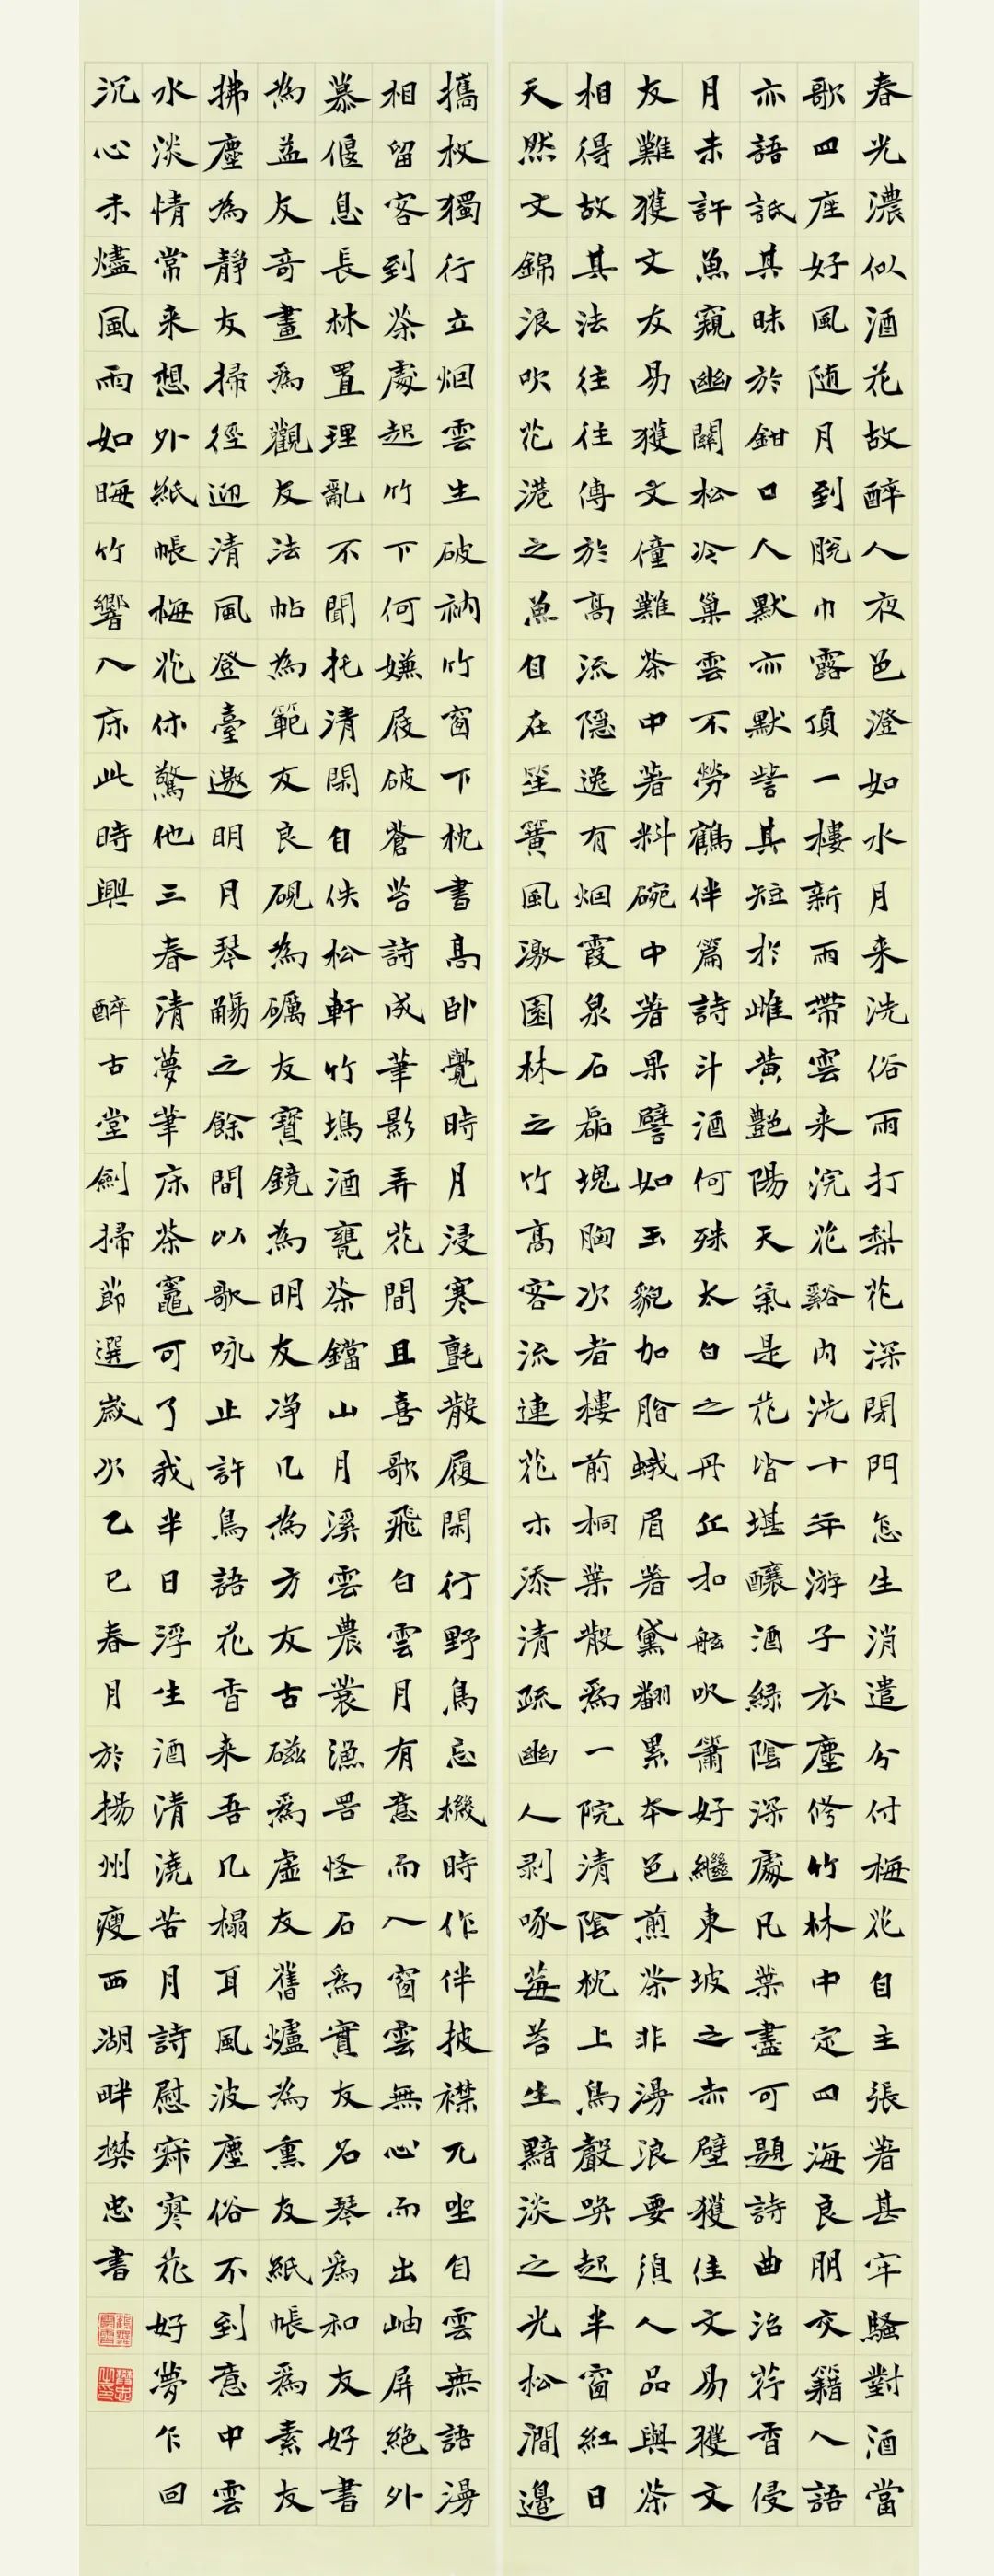 春光濃似酒花故醉人夜色澄如水月来洗俗雨打梨花深閉門怎生消遣分付梅花自主張著甚牢騷對酒當
歌四座好風随月到脱巾露頂一樓新雨帶雲来浣花谿内洗十年游子衣塵修竹林中定四海良朋交籍人語
亦語詆其昧於鉗口人默亦默訾其短於雌黄艶陽天氣是花皆堪釀酒緑陰深處凡葉盡可題詩曲沼荇香侵
月未許魚窺幽關松冷巢雲不勞鶴伴篇詩斗酒何殊太白之丹丘扣舷吹簫好繼東坡之赤壁獲佳文易獲文
友難獲文友易獲文僮難茶中著料碗中著果譬如玉貌加脂蛾眉著黛翻累本色煎茶非漫浪要須人品與茶
相得故其法往往傳於高流隱逸有烟霞泉石磊塊胸次者樓前桐葉散為一院清陰枕上鳥聲唤起半窗紅日
天然文錦浪吹花港之魚自在笙簧風激園林之竹高客流連花木添清疏幽人剥啄莓苔生黯淡之光松澗邊
攜杖獨行立烟雲生破衲竹窗下枕書高卧覺時月浸寒氈散履閑行野鳥忘機時作伴披襟兀坐白雲無語漫
相留客到茶處起竹下何嫌屐破蒼苔詩成筆影弄花間且喜歌飛白雲月有意而入窗雲無心而出岫屏絶外
慕偃息長林置理亂不聞托清閑自佚松軒竹塢酒甕茶鐺山月溪雲農蓑漁罟怪石為實友名琴為和友好書
為益友奇畫為觀友法帖為範友良硯為礪友寶鏡為明友净几為方友古磁為虚友舊爐為熏友紙帳為素友
拂塵為静友掃徑迎清風登臺邀明月琴觴之餘間以歌咏止許鳥語花香来吾几榻耳風波塵俗不到意中雲
水淡情常来想外紙帳梅花休驚他三春清夢筆床茶竈可了我半日浮生酒清澆苦月詩慰寂寥花好夢乍回
沉心未燼風雨如晦竹響入床此時興 醉古堂劍掃節選歲次乙巳春月於揚州瘦西湖畔樊忠書